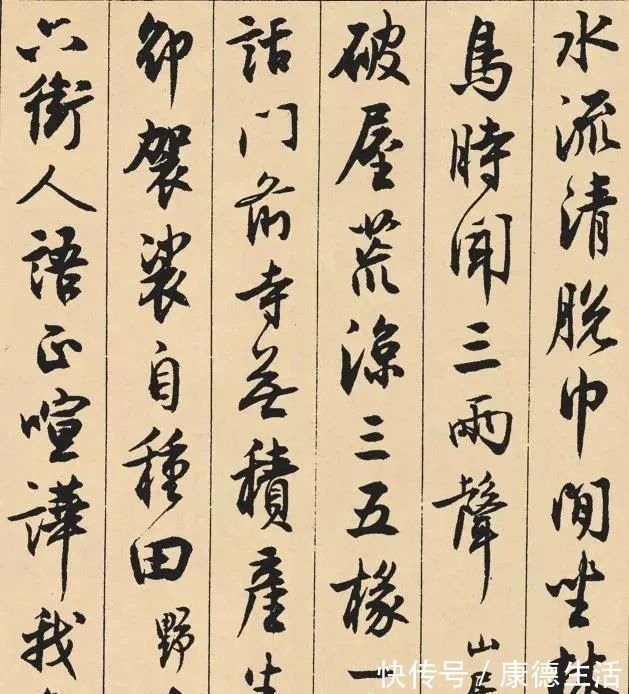 水流清脱巾閒坐
鳥時聞三兩聲 山
破屋荒涼三五椽一
話門前寺無積產生
卸袈裟自種田 野
六街人語正喧譁我
快传号 / 康德生活